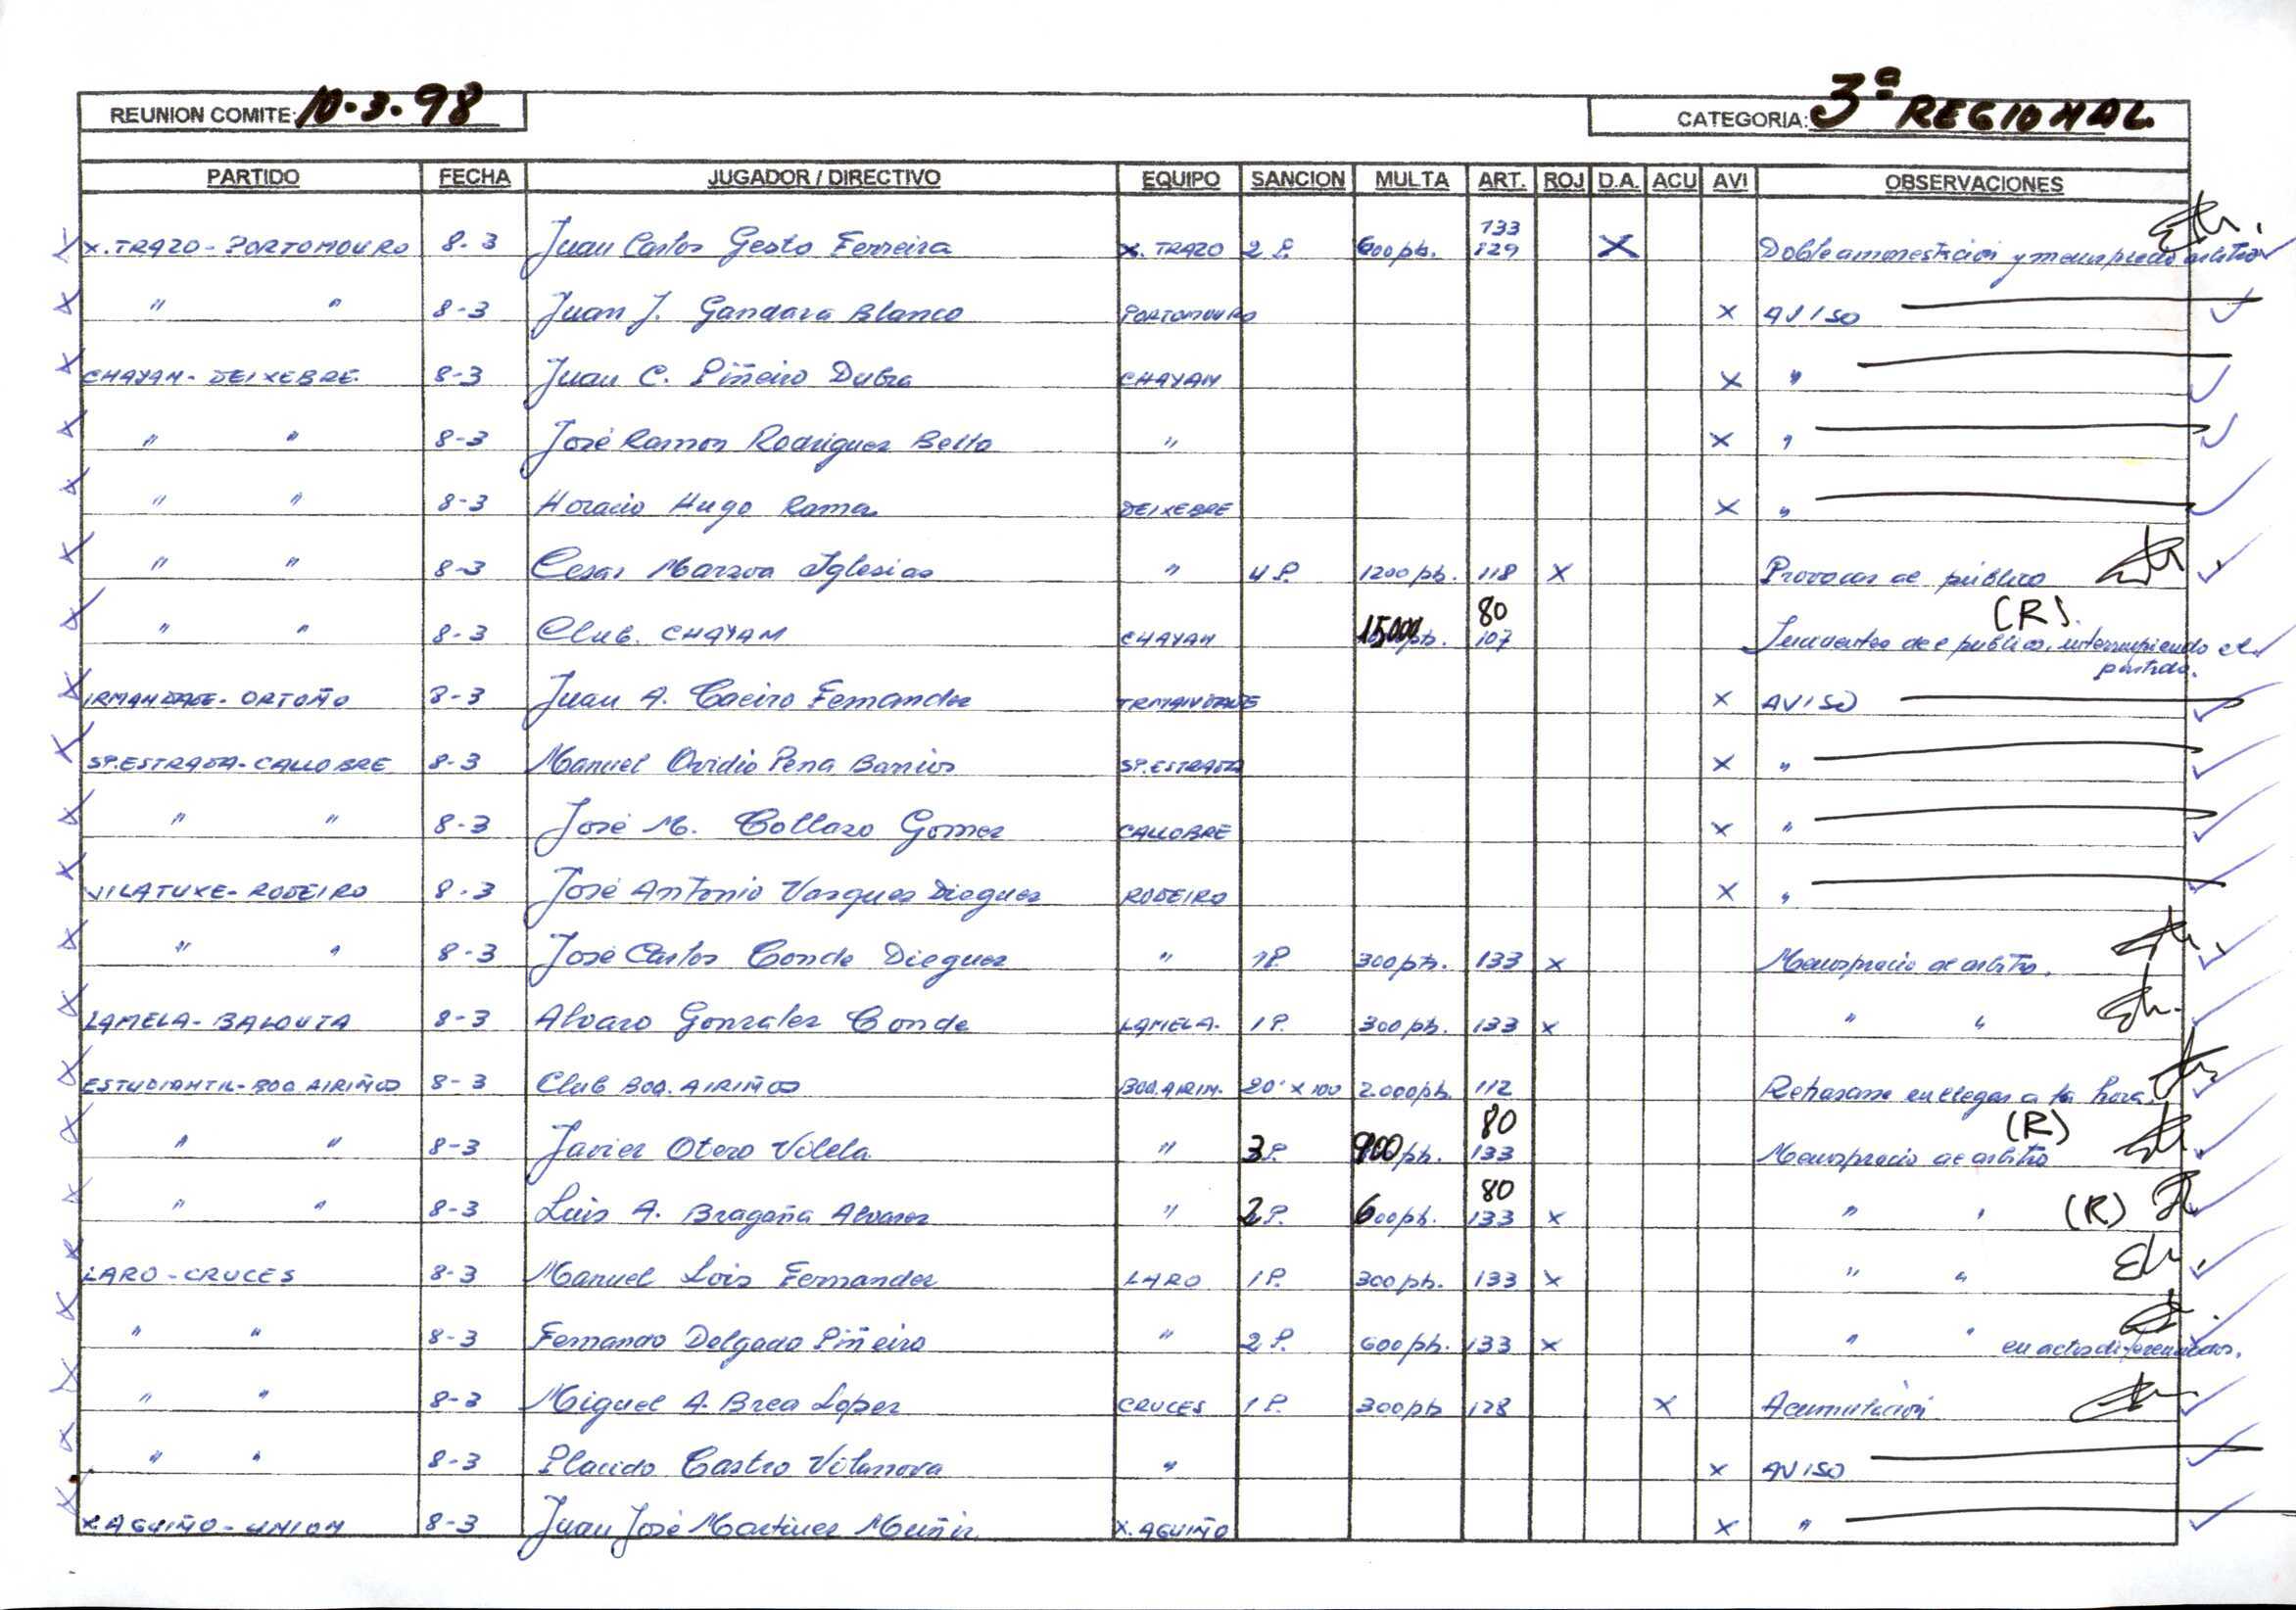 REUNION COMITE: 10-3-98 CATEGORIA: 3ª REGIONAL
PARTIDO FECHA JUGADOR / DIRECTIVO EQUIPO SANCION MULTA ART. ROJ D.A. ACU AVI OBSERVACIONES
133
X. TRAZO - PORTOMOURO 8-3 Juan Carlos Gesto Ferreira X. TRAZO 2 P. 600 pts. 129 X Doble amonestación y menosprecio arbitro
" " 8-3 Juan J. Gandara Blanco PORTOMOURO X AVISO
CHAYAN - DEIXEBRE 8-3 Juan C. Piñeiro Dubra CHAYAN X "
" " 8-3 José Ramon Rodriguez Bello " X "
" " 8-3 Horacio Hugo Rama DEIXEBRE X "
" " 8-3 Cesar Marzoa Iglesias " 4 P. 1200 pts. 118 X Provocar al público
80 (R).
" " 8-3 Club. CHAYAN CHAYAN 15000 pts. 107 Incidentes del publico, interrumpiendo el
partido.
IRMANDADE - ORTOÑO 8-3 Juan A. Caeiro Fernandez IRMANDADE X AVISO
SP. ESTRADA - CALLOBRE 8-3 Manuel Ovidio Pena Barrios SP. ESTRADA X "
" " 8-3 José M. Collazo Gomez CALLOBRE X "
VILATUXE - RODEIRO 8-3 José Antonio Vazquez Dieguez RODEIRO X "
" " 8-3 José Carlos Conde Dieguez " 1P. 300 pts. 133 X Menosprecio al arbitro.
LAMELA - BALOUTA 8-3 Alvaro Gonzalez Conde LAMELA. 1 P. 300 pts. 133 X " "
ESTUDIANTIL - BOQ. AIRIÑOS 8-3 Club BOQ. AIRIÑOS BOQ. AIRIÑ. 20' x 100 2.000 pts. 112 Retrasarse en llegar a la hora.
80 (R)
" " 8-3 Javier Otero Vilela " 3 P. 900 pts. 133 Menosprecio al arbitro
80
" " 8-3 Luis A. Bragaña Alvarez " 2 P. 600 pts. 133 X " " (R)
LARO - CRUCES 8-3 Manuel Lois Fernandez LARO 1 P. 300 pts. 133 X " "
" " 8-3 Fernando Delgado Piñeiro " 2 P. 600 pts. 133 X " " en actos diferenciados.
" " 8-3 Miguel A. Brea Lopez CRUCES 1 P. 300 pts 128 X Acumulación
" " 8-3 Placido Castro Vilanova " X AVISO
X. AGUIÑO - UNION 8-3 Juan José Martinez Muñiz X. AGUIÑO X "